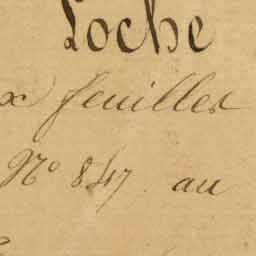 Loche
x feuilles
N° 847 au